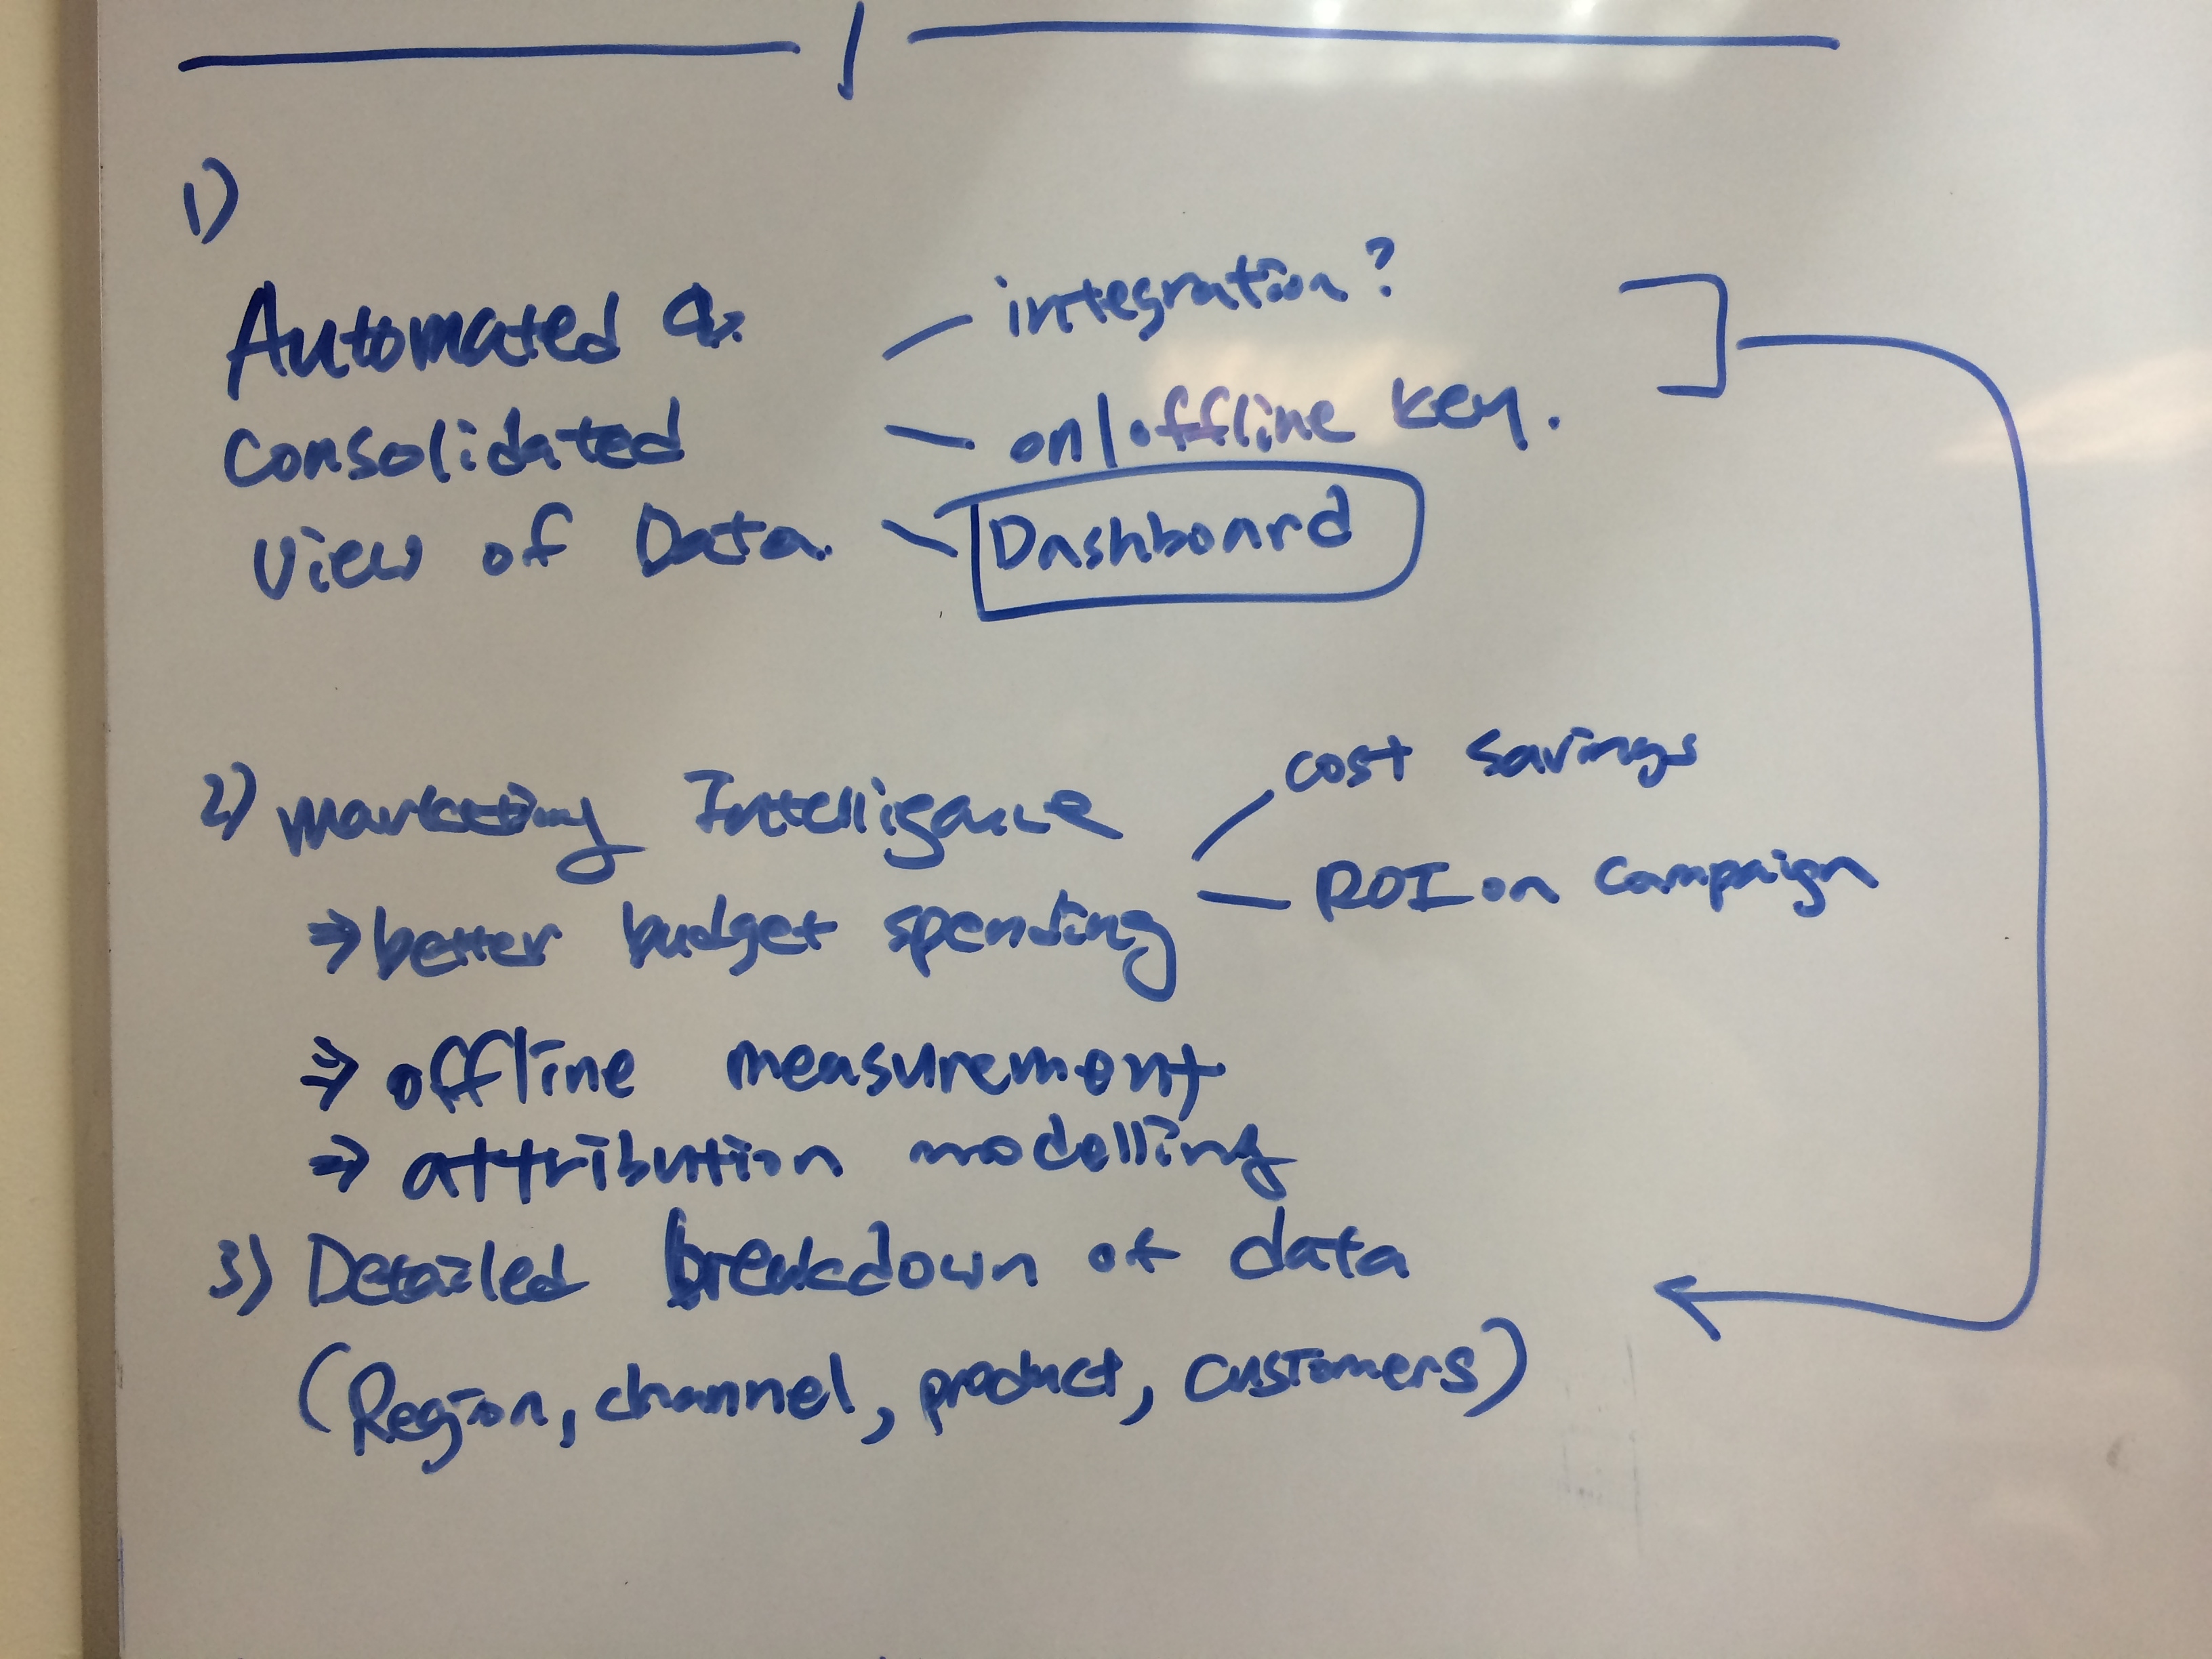 1)
Automated &
consolidated
view of Data.
integration?
on|offline key.
Dashboard
2) Marketing Intelligence
cost savings
ROI on campaign
⇒ better budget spending
⇒ offline measurement
⇒ attribution modelling
3) Detailed breakdown of data
(Region, channel, product, customers)